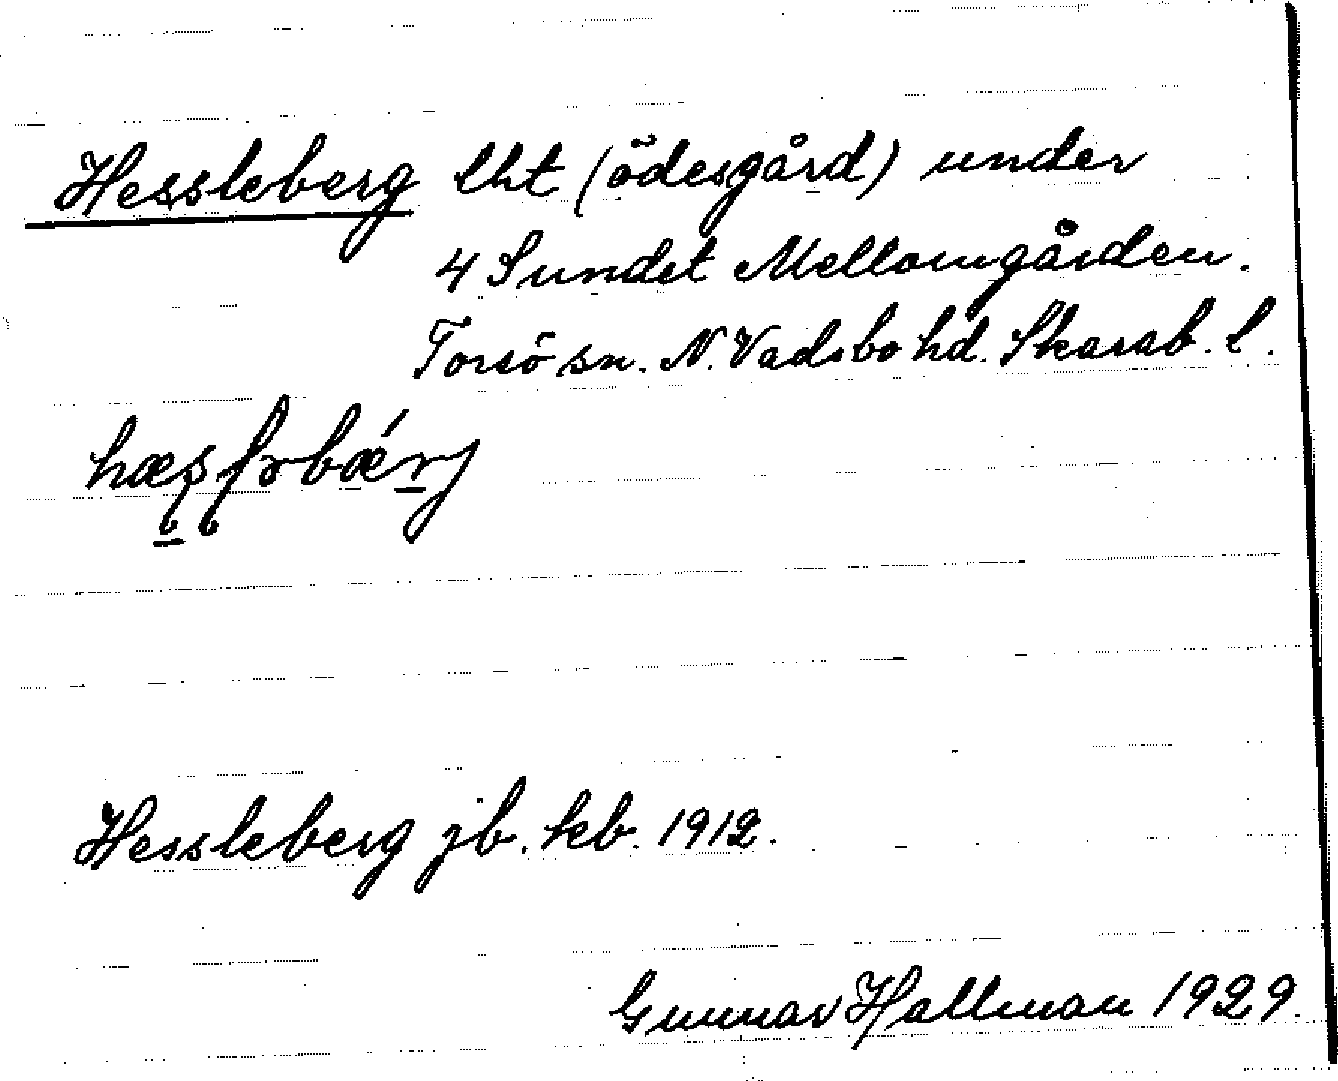 Hessleberg lht (ödesgård) under
4 Sundet Mellomgården.
Torsö sn. N. Vadsbo hd. Skarab. l.
Hessleberg jb. keb. 1912.
Gunnar Hallman 1929.